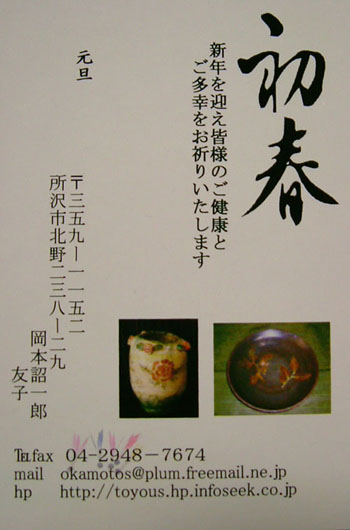 初春
新年を迎え皆様のご健康と
ご多幸をお祈りいたします
元旦
〒三五九ー一一五二
所沢市北野二三八ー二九
岡本詔一郎
友子
℡fax 04-2948-7674
mail okamotos@plum.freemail.ne.jp
hp http://toyous.hp.infoseek.co.jp